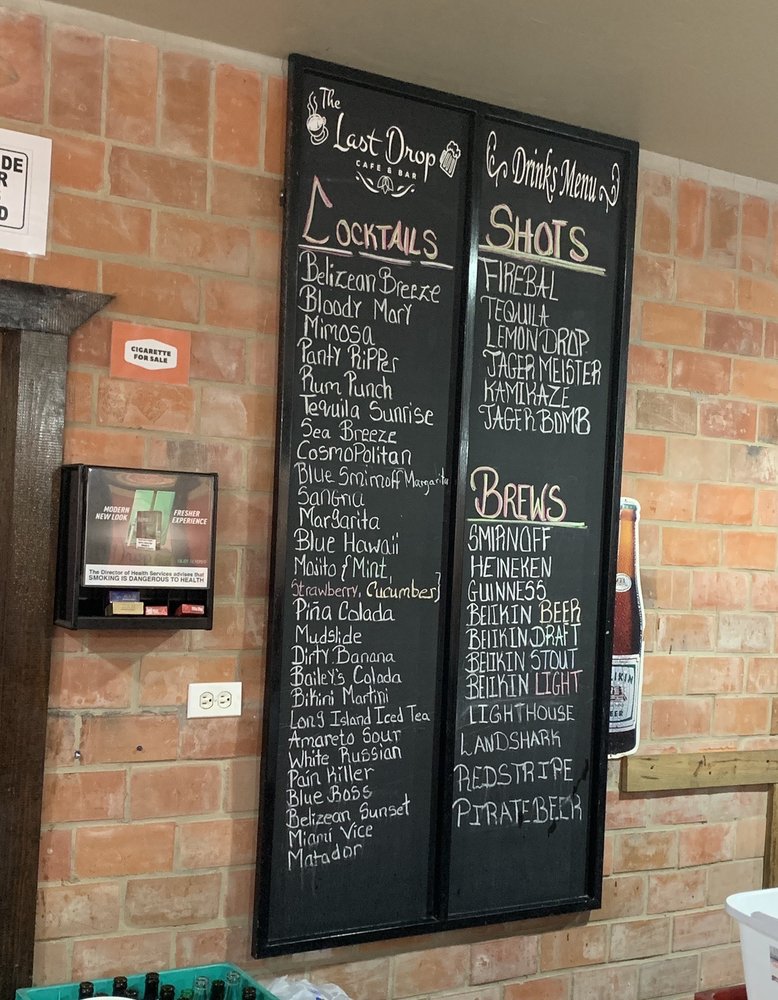 DE
R
D
CIGARETTE
FOR SALE
MODERN
NEW LOOK
FRESHER
EXPERIENCE
The Director of Health Services advises that
SMOKING IS DANGEROUS TO HEALTH
The
Last Drop
CAFE & BAR
Cocktails
Belizean Breeze
Bloody Mary
Mimosa
Panty Ripper
Rum Punch
Tequila Sunrise
Sea Breeze
Cosmopolitan
Blue Smirnoff Margarita
Sangria
Margarita
Blue Hawaii
Mojito {Mint,
Strawberry, Cucumber}
Piña Colada
Mudslide
Dirty Banana
Bailey's Colada
Bikini Martini
Long Island Iced Tea
Amareto Sour
White Russian
Pain Killer
Blue Boss
Belizean Sunset
Miami Vice
Matador
Drinks Menu
SHOTS
FIREBAL
TEQUILA
LEMON DROP
JAGER MEISTER
KAMIKAZE
JAGER BOMB
BREWS
SMIRNOFF
HEINEKEN
GUINNESS
BELIKIN BEER
BELIKIN DRAFT
BELIKIN STOUT
BELIKIN LIGHT
LIGHTHOUSE
LANDSHARK
REDSTRIPE
PIRATE BEER
LIKIN
BEER